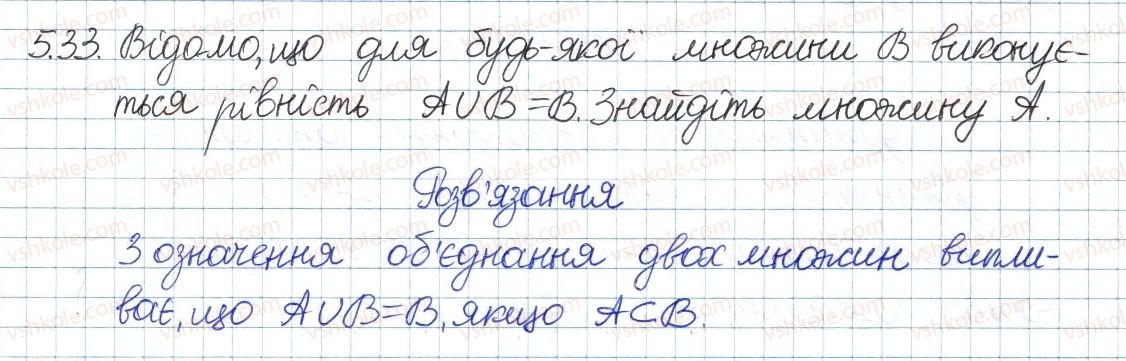 5.33. Відомо, що для будь-якої множини В виконує-
ться рівність A∪B=B. Знайдіть множину А.
Розв'язання
З означення об'єднання двох множин випли-
ває, що A∪B=B, якщо A⊂B.